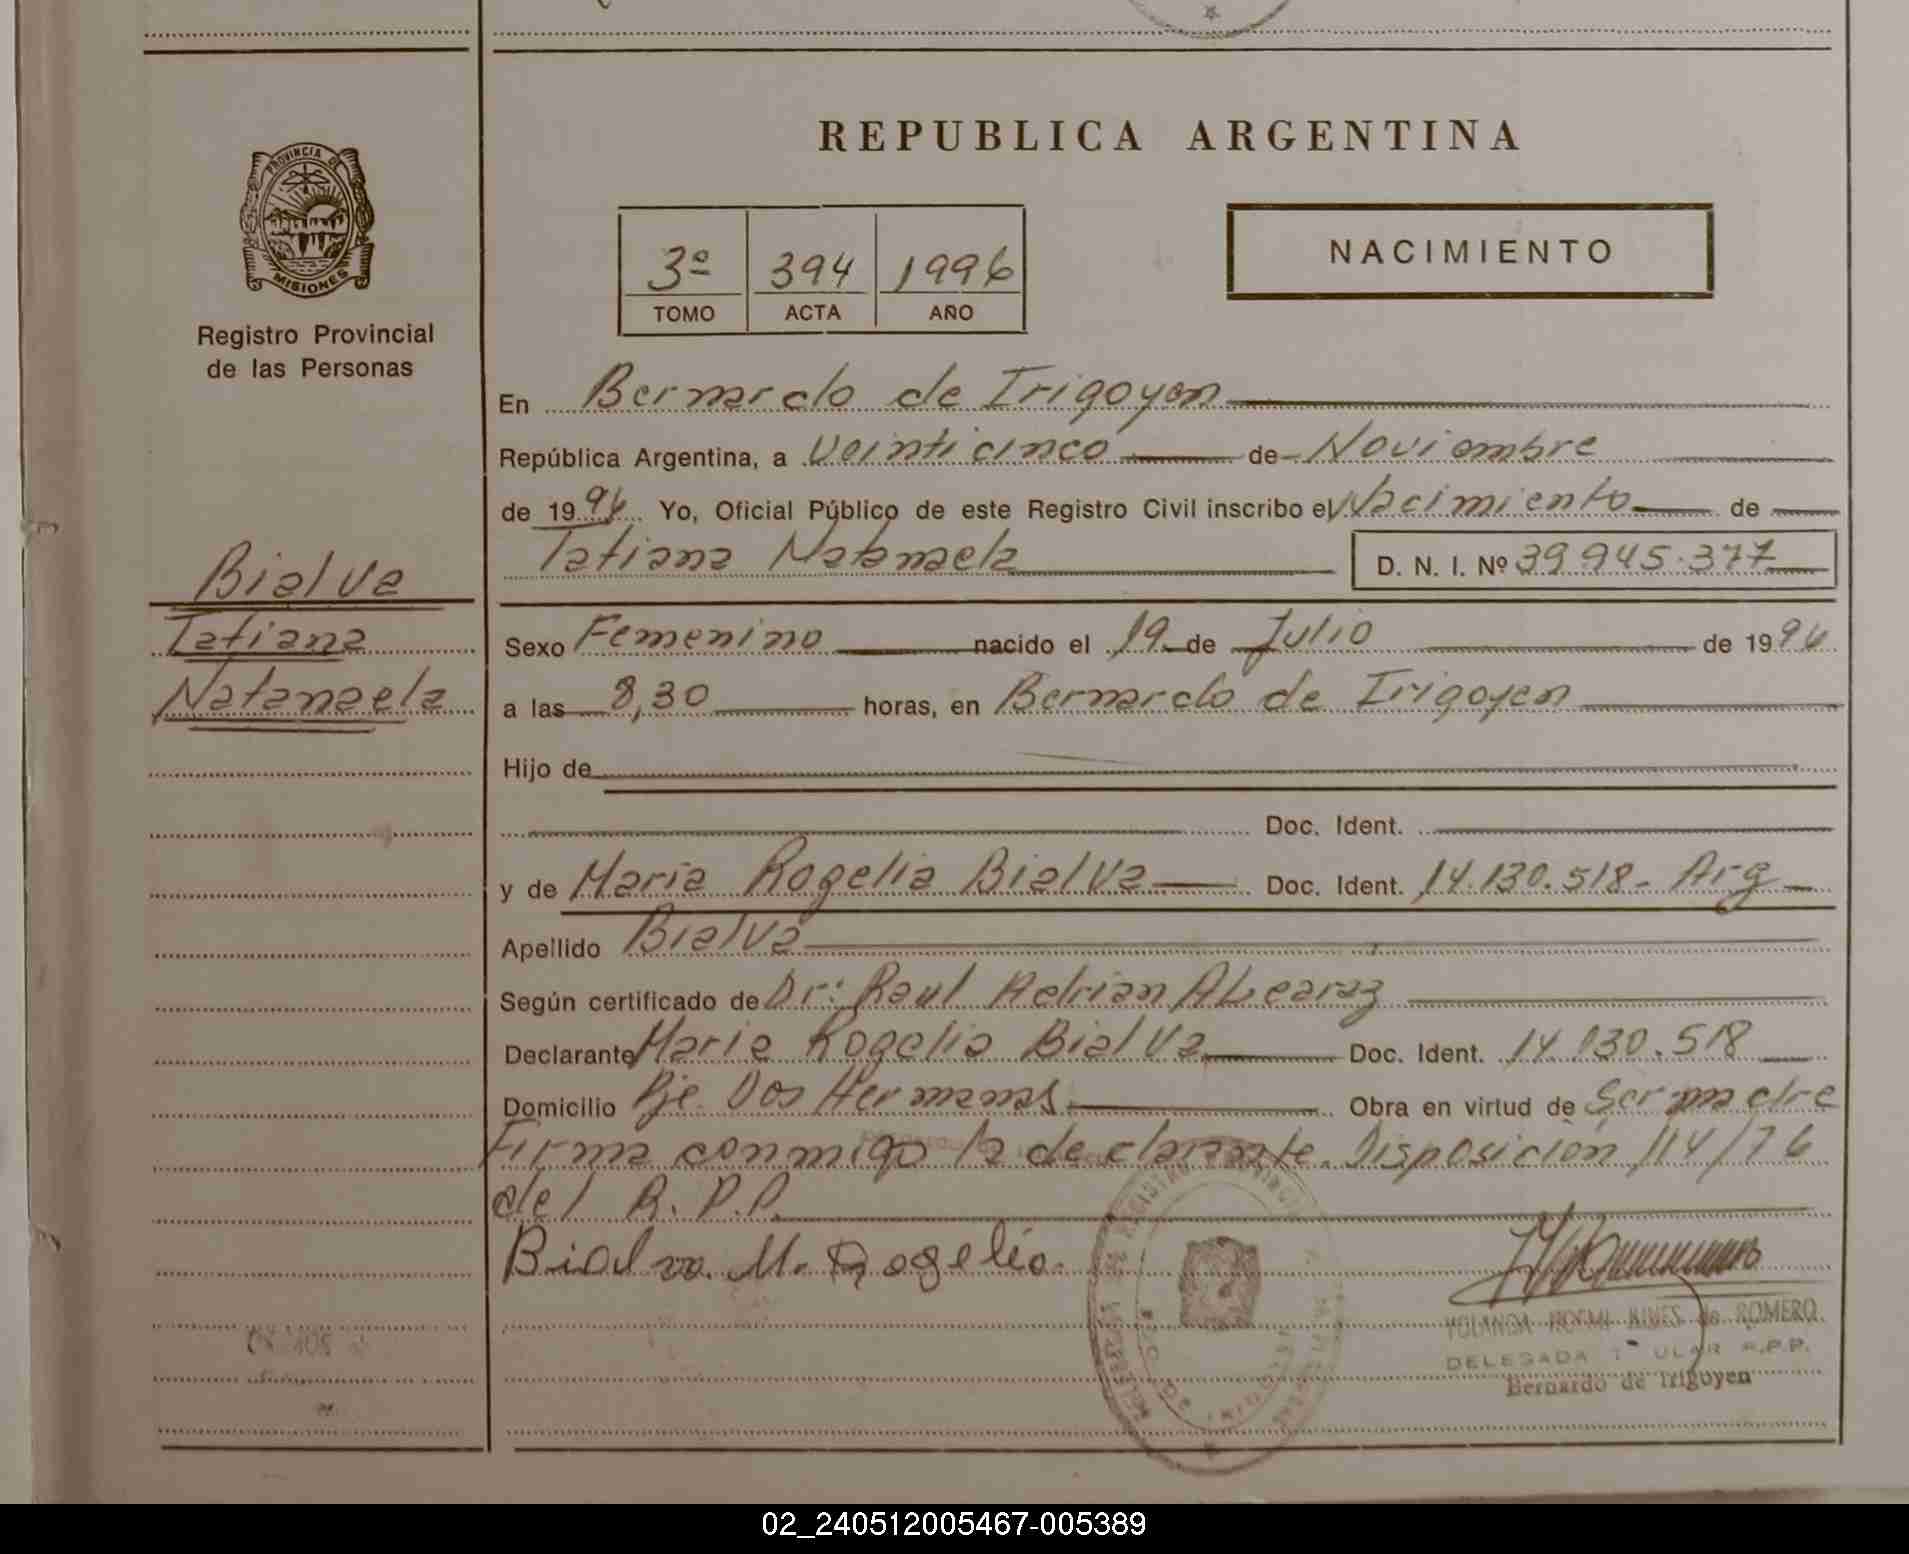 REPUBLICA ARGENTINA
PROVINCIA DE
MISIONES
Registro Provincial
de las Personas
3º 394 1996
TOMO ACTA AÑO
NACIMIENTO
En Bernardo de Irigoyen
República Argentina, a Veinticinco de Noviembre
de 1996 Yo, Oficial Público de este Registro Civil inscribo el Nacimiento de
Tatiana Natanaela D. N. I. Nº 39.945.377
Bialva
Tatiana
Natanaela
Sexo Femenino nacido el 19 de Julio de 1996
a las 8,30 horas, en Bernardo de Irigoyen
Hijo de
Doc. Ident.
y de Maria Rogelia Bialva Doc. Ident. 14.130.518- Arg
Apellido Bialva
Según certificado de Dr: Raul Adrian Alcaraz
Declarante Maria Rogelia Bialva Doc. Ident. 14.130.518
Domicilio Pje. Dos Hermanas Obra en virtud de Ser madre
Firma conmigo la declarante. Disposición 114/76
del R.P.P.
Bialva M. Rogelia
de ROMERO
DELEGADA R.P.P.
Bernardo de Irigoyen
02_240512005467-005389